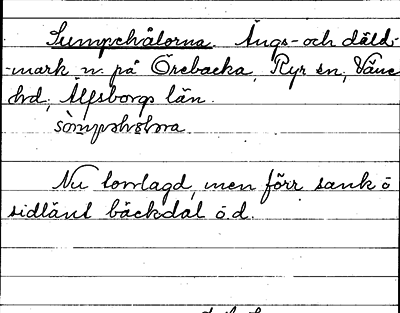 Sumpehålorna. Ängs- och däld-
-mark n. på Örebacka, Ryr sn, Väne
hd, Älfsborgs län.

Nu torrlagd, men förr sank ö
sidlänt bäckdal ö.d.